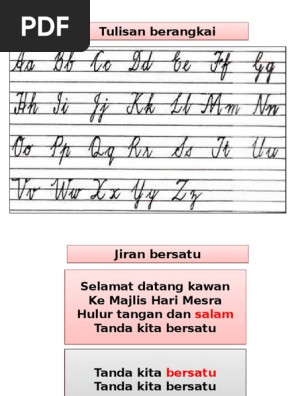 PDF
Tulisan berangkai
Aa Bb Cc Dd Ee Ff Gg
Hh Ii Jj Kk Ll Mm Nn
Oo Pp Qq Rr Ss Tt Uu
Vv Ww Xx Yy Zz
Jiran bersatu
Selamat datang kawan
Ke Majlis Hari Mesra
Hulur tangan dan salam
Tanda kita bersatu
Tanda kita bersatu
Tanda kita bersatu